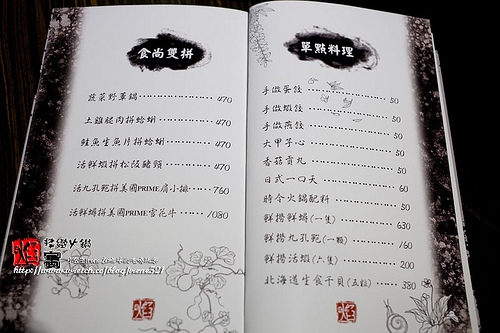 食尚雙拼
蔬菜野蕈鍋 470
土雞腿肉拼蛤蜊 470
鮭魚生魚片拼蛤蜊 470
活鮮蝦拼松阪豬頸 470
活九孔鮑拼美國PRIME肩小排 760
活鮮蟳拼美國PRIME雪花牛 1080
單點料理
手做蛋餃 50
手做蝦餃 50
手做燕餃 50
大甲芋心 50
香菇貢丸 50
日式一口天 60
時令火鍋配料 50
鮮撈鮮蟳(一隻) 630
鮮撈九孔鮑(一顆) 160
鮮撈活蝦(六隻) 200
北海道生食干貝(五粒) 380
http://www.wretch.cc/blog/irene321